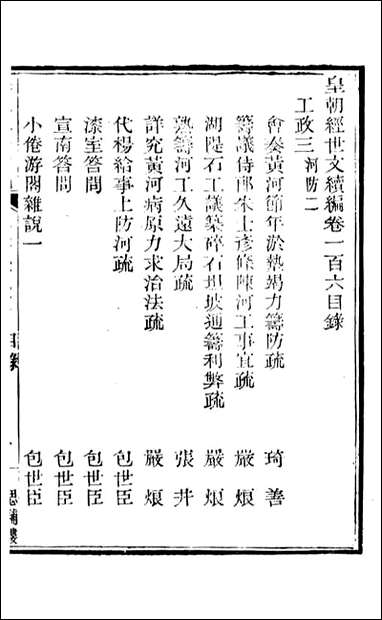 皇朝經世文續編卷一百六目錄
工政三河防二
會奏黃河節年淤墊竭力籌防疏 琦善
籌議侍郎朱士彥條陳河工事宜疏 嚴烺
湖隄石工議築碎石坦坡通籌利弊疏 嚴烺
熟籌河工久遠大局疏 張井
詳究黃河病原力求治法疏 嚴烺
代楊給事上防河疏 包世臣
漆室答問 包世臣
宣南答問 包世臣
小倦游閣雜說一 包世臣
目錄 一 思補樓